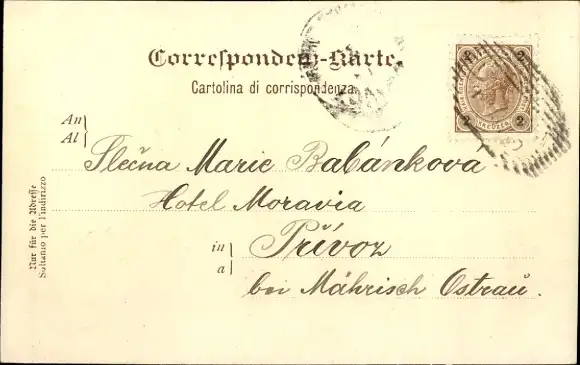 Correspondenz-Karte.
Cartolina di corrispondenza
An
Al
Slečna Marie Babánkova
Hotel Moravia
in
a
Přívoz
bei Mährisch Ostrau.
Nur für die Adresse
Soltanto per l'indirizzo
2 2
2 2